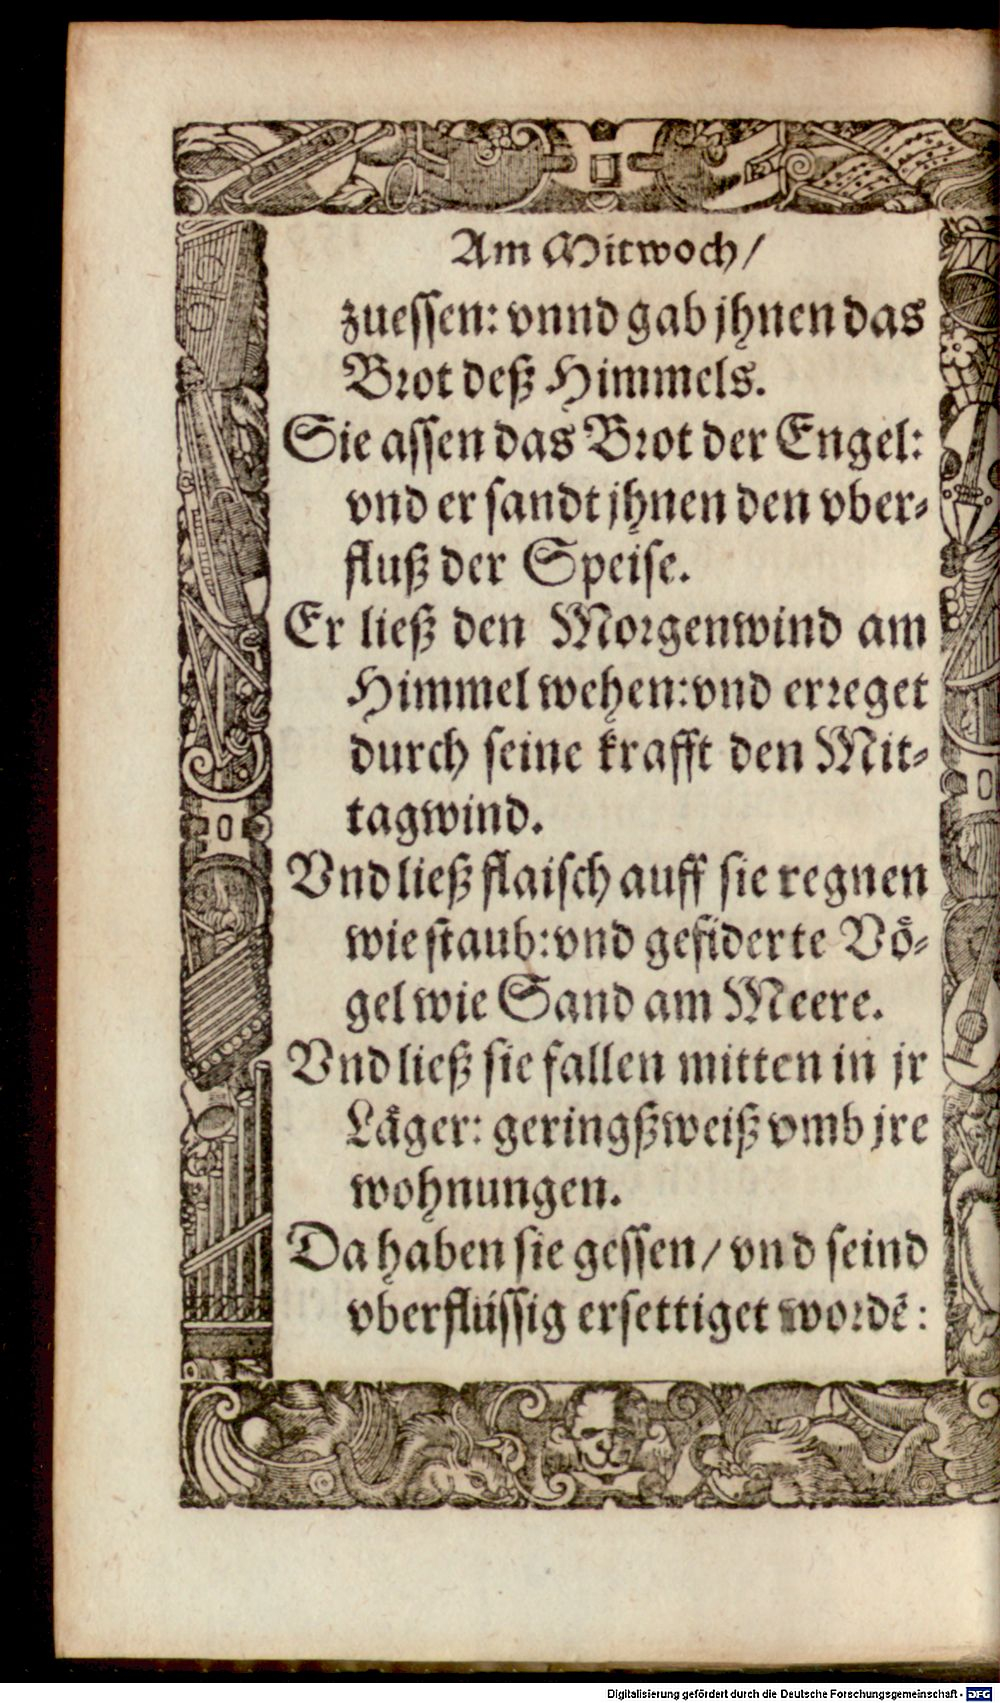 Am Mitwoch/
zuessen: vnnd gab jhnen das
Brot deß Himmels.
Sie assen das Brot der Engel:
vnd er sandt jhnen den vber-
fluß der Speise.
Er ließ den Morgenwind am
Himmel wehen: vnd erreget
durch seine krafft den Mit-
tagwind.
Vnd ließ flaisch auff sie regnen
wie staub: vnd gefiderte Vö-
gel wie Sand am Meere.
Vnd ließ sie fallen mitten in jr
Läger: geringßweiß vmb jre
wohnungen.
Da haben sie gessen/ vnd seind
vberflüssig ersettiget wordē:
Digitalisierung gefördert durch die Deutsche Forschungsgemeinschaft - DFG